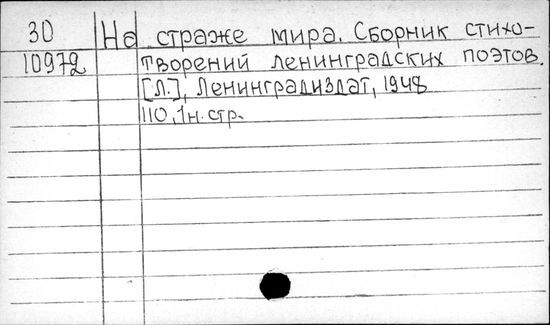 30 На страже мира. Сборник стихо-
10972 творений ленинградских поэтов.
[Л.], Ленинградиздат, 1948
110, 1н. стр.